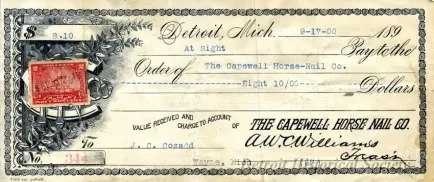 Detroit, Mich. 9-17-00 189
$ 8.10
At Sight Pay to the
Order of The Capewell Horse-Nail Co.
Eight 10/00 Dollars
VALUE RECEIVED AND
CHARGE TO ACCOUNT
OF THE CAPEWELL HORSE NAIL CO.
To
J. C. Cozadd
A.W.C. Williams
Treas.
Wayne, Mich.
No.
Detroit Historical Society